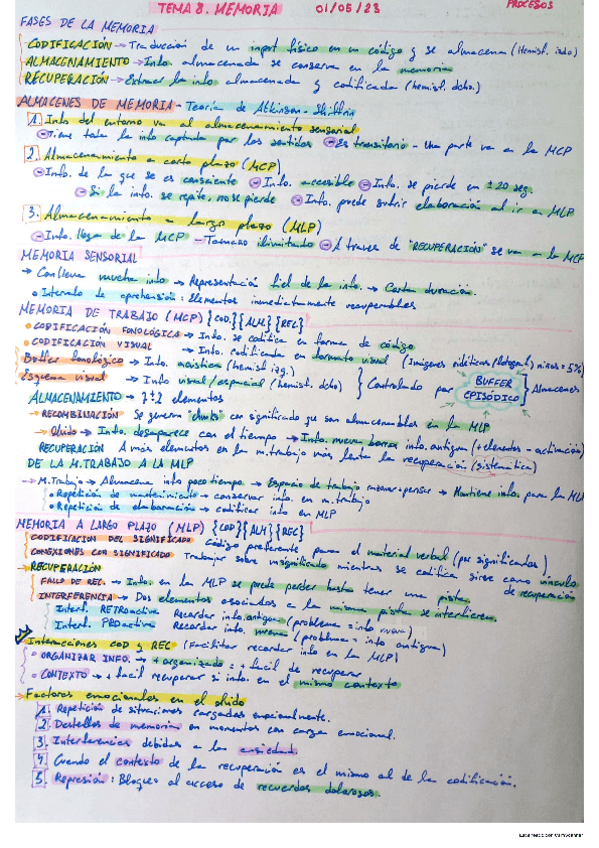 TEMA 8. MEMORIA 01/05/23 PROCESOS
FASES DE LA MEMORIA
CODIFICACIÓN → Traducción de un input físico en un código y se almacena (Hemisf. izdo)
ALMACENAMIENTO → Info. almacenada se conserva en la memoria
RECUPERACIÓN → Extraer la info. almacenada y codificada (hemisf. dcho.)
ALMACENES DE MEMORIA - Teoría de Atkinson-Shiffrin
1. Info del entorno va al almacenamiento sensorial
Tiene toda la info captada por los sentidos Es transitorio - Una parte va a la MCP
2. Almacenamiento a corto plazo (MCP)
Info. de la que se es consciente Info. accesible Info. se pierde en ±20 seg.
Si la info. se repite, no se pierde Info. puede sufrir elaboración al ir a MLP
3. Almacenamiento a largo plazo (MLP)
Info. llega de la MCP - Tamaño ilimitado A traves de "RECUPERACIÓN" se va a la MCP
MEMORIA SENSORIAL
→ Conlleva mucha info → Representación fiel de la info. → Corta duración.
Intervalo de aprehensión: Elementos inmediatamente recuperables
MEMORIA DE TRABAJO (MCP) {COD.}{ALM.}{REC}
CODIFICACIÓN FONOLÓGICA → Info. se codifica en forma de código
CODIFICACIÓN VISUAL → Info. codificada en formato visual (Imágenes nídíticas (fotograf.) niños = 5%)
Buffer fonológico → Info. acústica (hemisf. izq.)
Esquema visual → Info visual/espacial (hemisf. dcho) } Controlado por BUFFER EPISÓDICO } Almacenes
ALMACENAMIENTO → 7±2 elementos
→ RECOMBINACIÓN → Se generan "chunks" con significado que son almacenables en la MLP
→ Olvido → Info. desaparece con el tiempo → Info. nueva borra info. antigua (+ elementos - activación)
RECUPERACIÓN A más elementos en la m. trabajo más lenta la recuperación (sistemática)
DE LA M. TRABAJO A LA MLP
→ M. Trabajo → Almacena info poco tiempo → Espacio de trabajo → Mantiene info. para la MLP
Repetición de mantenimiento → conservar info. en m. trabajo
Repetición de elaboración → codificar info en MLP
MEMORIA A LARGO PLAZO (MLP) {COD}{ALM}{REC}
CODIFICACIÓN DEL SIGNIFICADO Código preferente para el material verbal (por significados)
CONEXIONES CON SIGNIFICADO Trabajar sobre significado mientras se codifica sirve como vínculo de recuperación
→ RECUPERACIÓN
FALLO DE REC. → Info. en la MLP se puede perder hasta tener una pista.
INTERFERENCIA → Dos elementos asociados a la misma pista se interfieren.
Interf. RETROactiva Recordar info. antigua (problema = info nueva)
Interf. PROactiva Recordar info. nueva (problema = info antigua)
Interacciones COD y REC (Facilitar recordar info en la MLP)
ORGANIZAR INFO. → + organizado = + facil de recuperar
CONTEXTO → + facil recuperar si info. en el mismo contexto
→ Factores emocionales en el olvido
1. Repetición de situaciones cargadas emocionalmente.
2. Destellos de memoria en momentos con carga emocional.
3. Interferencias debidas a la ansiedad.
4. Cuando el contexto de la recuperación es el mismo al de la codificación.
5. Represión: Bloqueo al acceso de recuerdos dolorosos.